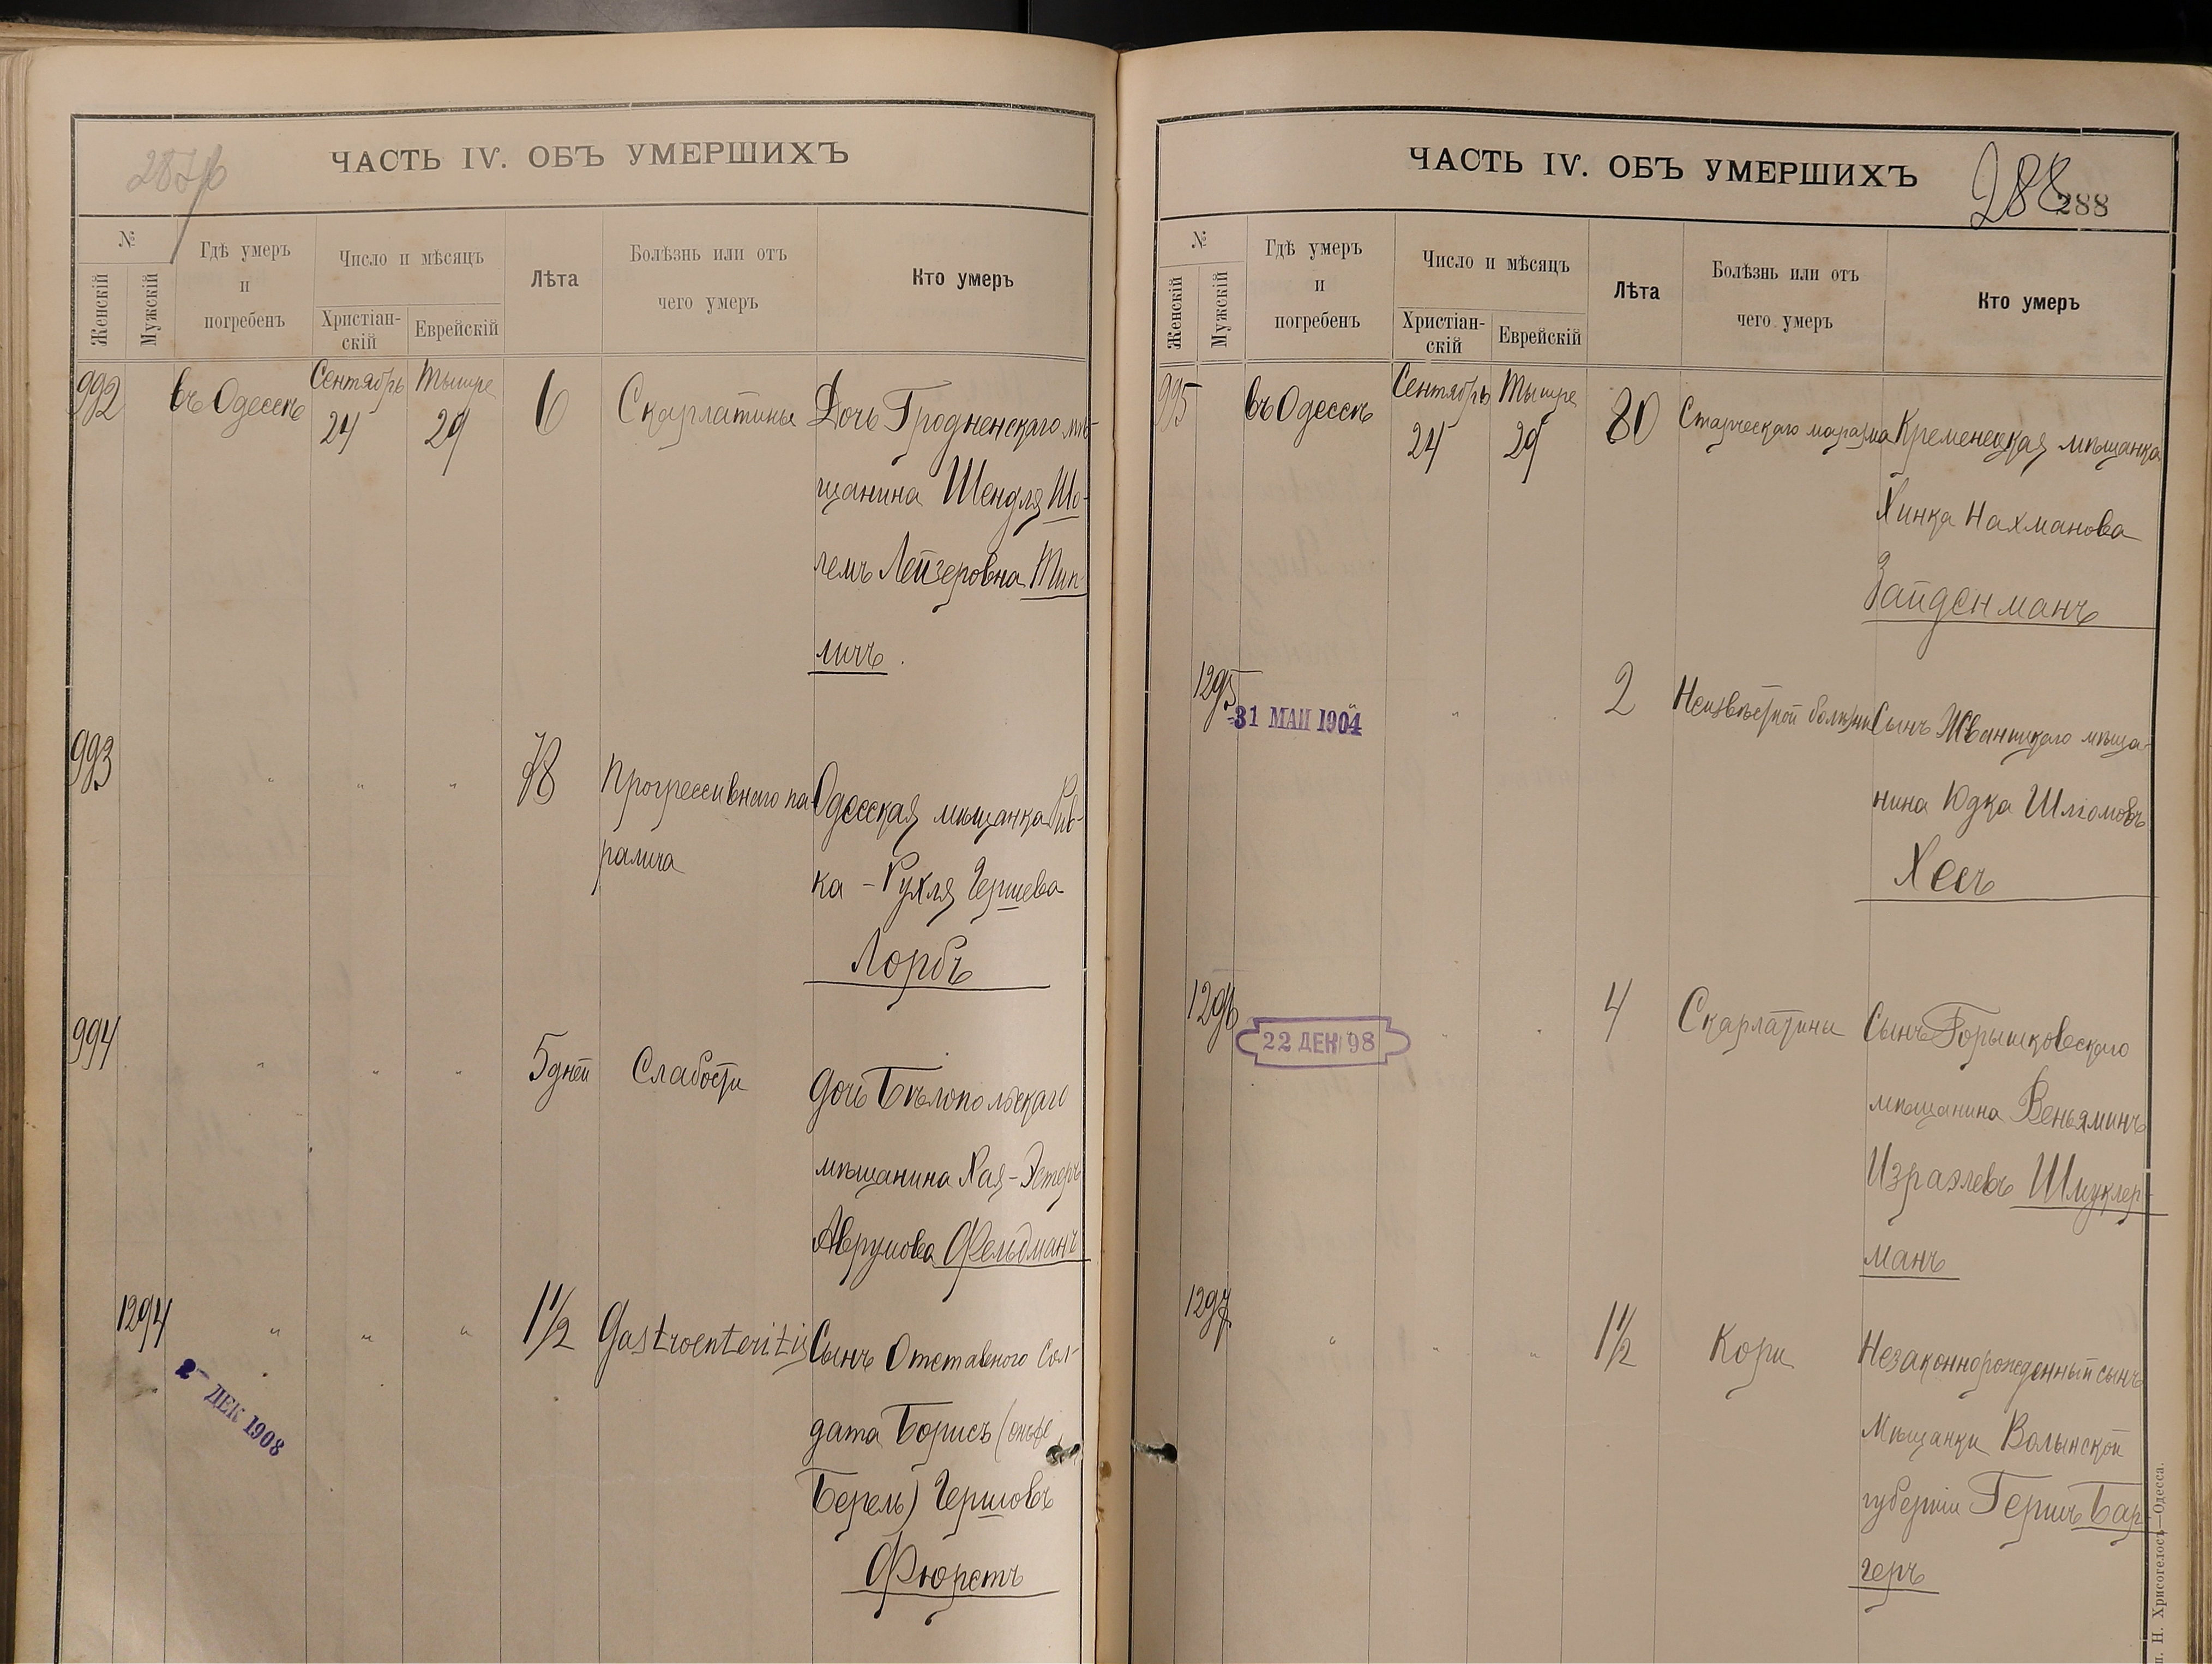 287/б
ЧАСТЬ IV. ОБЪ УМЕРШИХЪ
№
Женскій
Мужскій
Гдѣ умеръ
и
погребенъ
Число и мѣсяцъ
Христіан-
скій
Еврейскій
Лѣта
Болѣзнь или отъ
чего умеръ
Кто умеръ
992 въ Одессѣ Сентябрь 24 Тышре 29 6 Скарлатины Дочь Гродненскаго мѣ-
щанина Шендля Шо-
лемъ Лейзеровна Тип-
личъ.
993 " " " 78 Прогрессивнаго па- Одесская мѣщанка Рив-
ралича ка-Рухля Гершева
Лорбъ
994 " " " 5 дней Слабости дочь Бѣлопольскаго
мѣщанина Хая-Эстеръ
Аврумова Фельдманъ
1294 " " " 1 1/2 Gastroenteritis Сынъ Отставного сол-
дата Борисъ (онъ же
Берель) Гершовъ
Фюретъ
2- ДЕК 1908
ЧАСТЬ IV. ОБЪ УМЕРШИХЪ
288
288
№
Женскій
Мужскій
Гдѣ умеръ
и
погребенъ
Число и мѣсяцъ
Христіан-
скій
Еврейскій
Лѣта
Болѣзнь или отъ
чего умеръ
Кто умеръ
995 въ Одессѣ Сентябрь 24 Тышре 29 80 Старческаго маразма Кременецкая мѣщанка
Хинка Нахманова
Зайденманъ
1295 " " " 2 Неизвѣстной болѣзни Сынъ Жванецкаго мѣща-
-31 МАИ 1904
нина Юдка Шліомовъ
Хесъ
1296 " " 4 Скарлатины Сынъ Горышковскаго
22 ДЕК 98
мѣщанина Веньяминъ
Израэлевъ Шмуклер-
манъ
1297 " " " 1 1/2 Кори Незаконнорожденный сынъ
Мѣщанки Волынской
губерніи Гершъ Бар-
геръ
Н. Хрисогелосъ—Одесса.